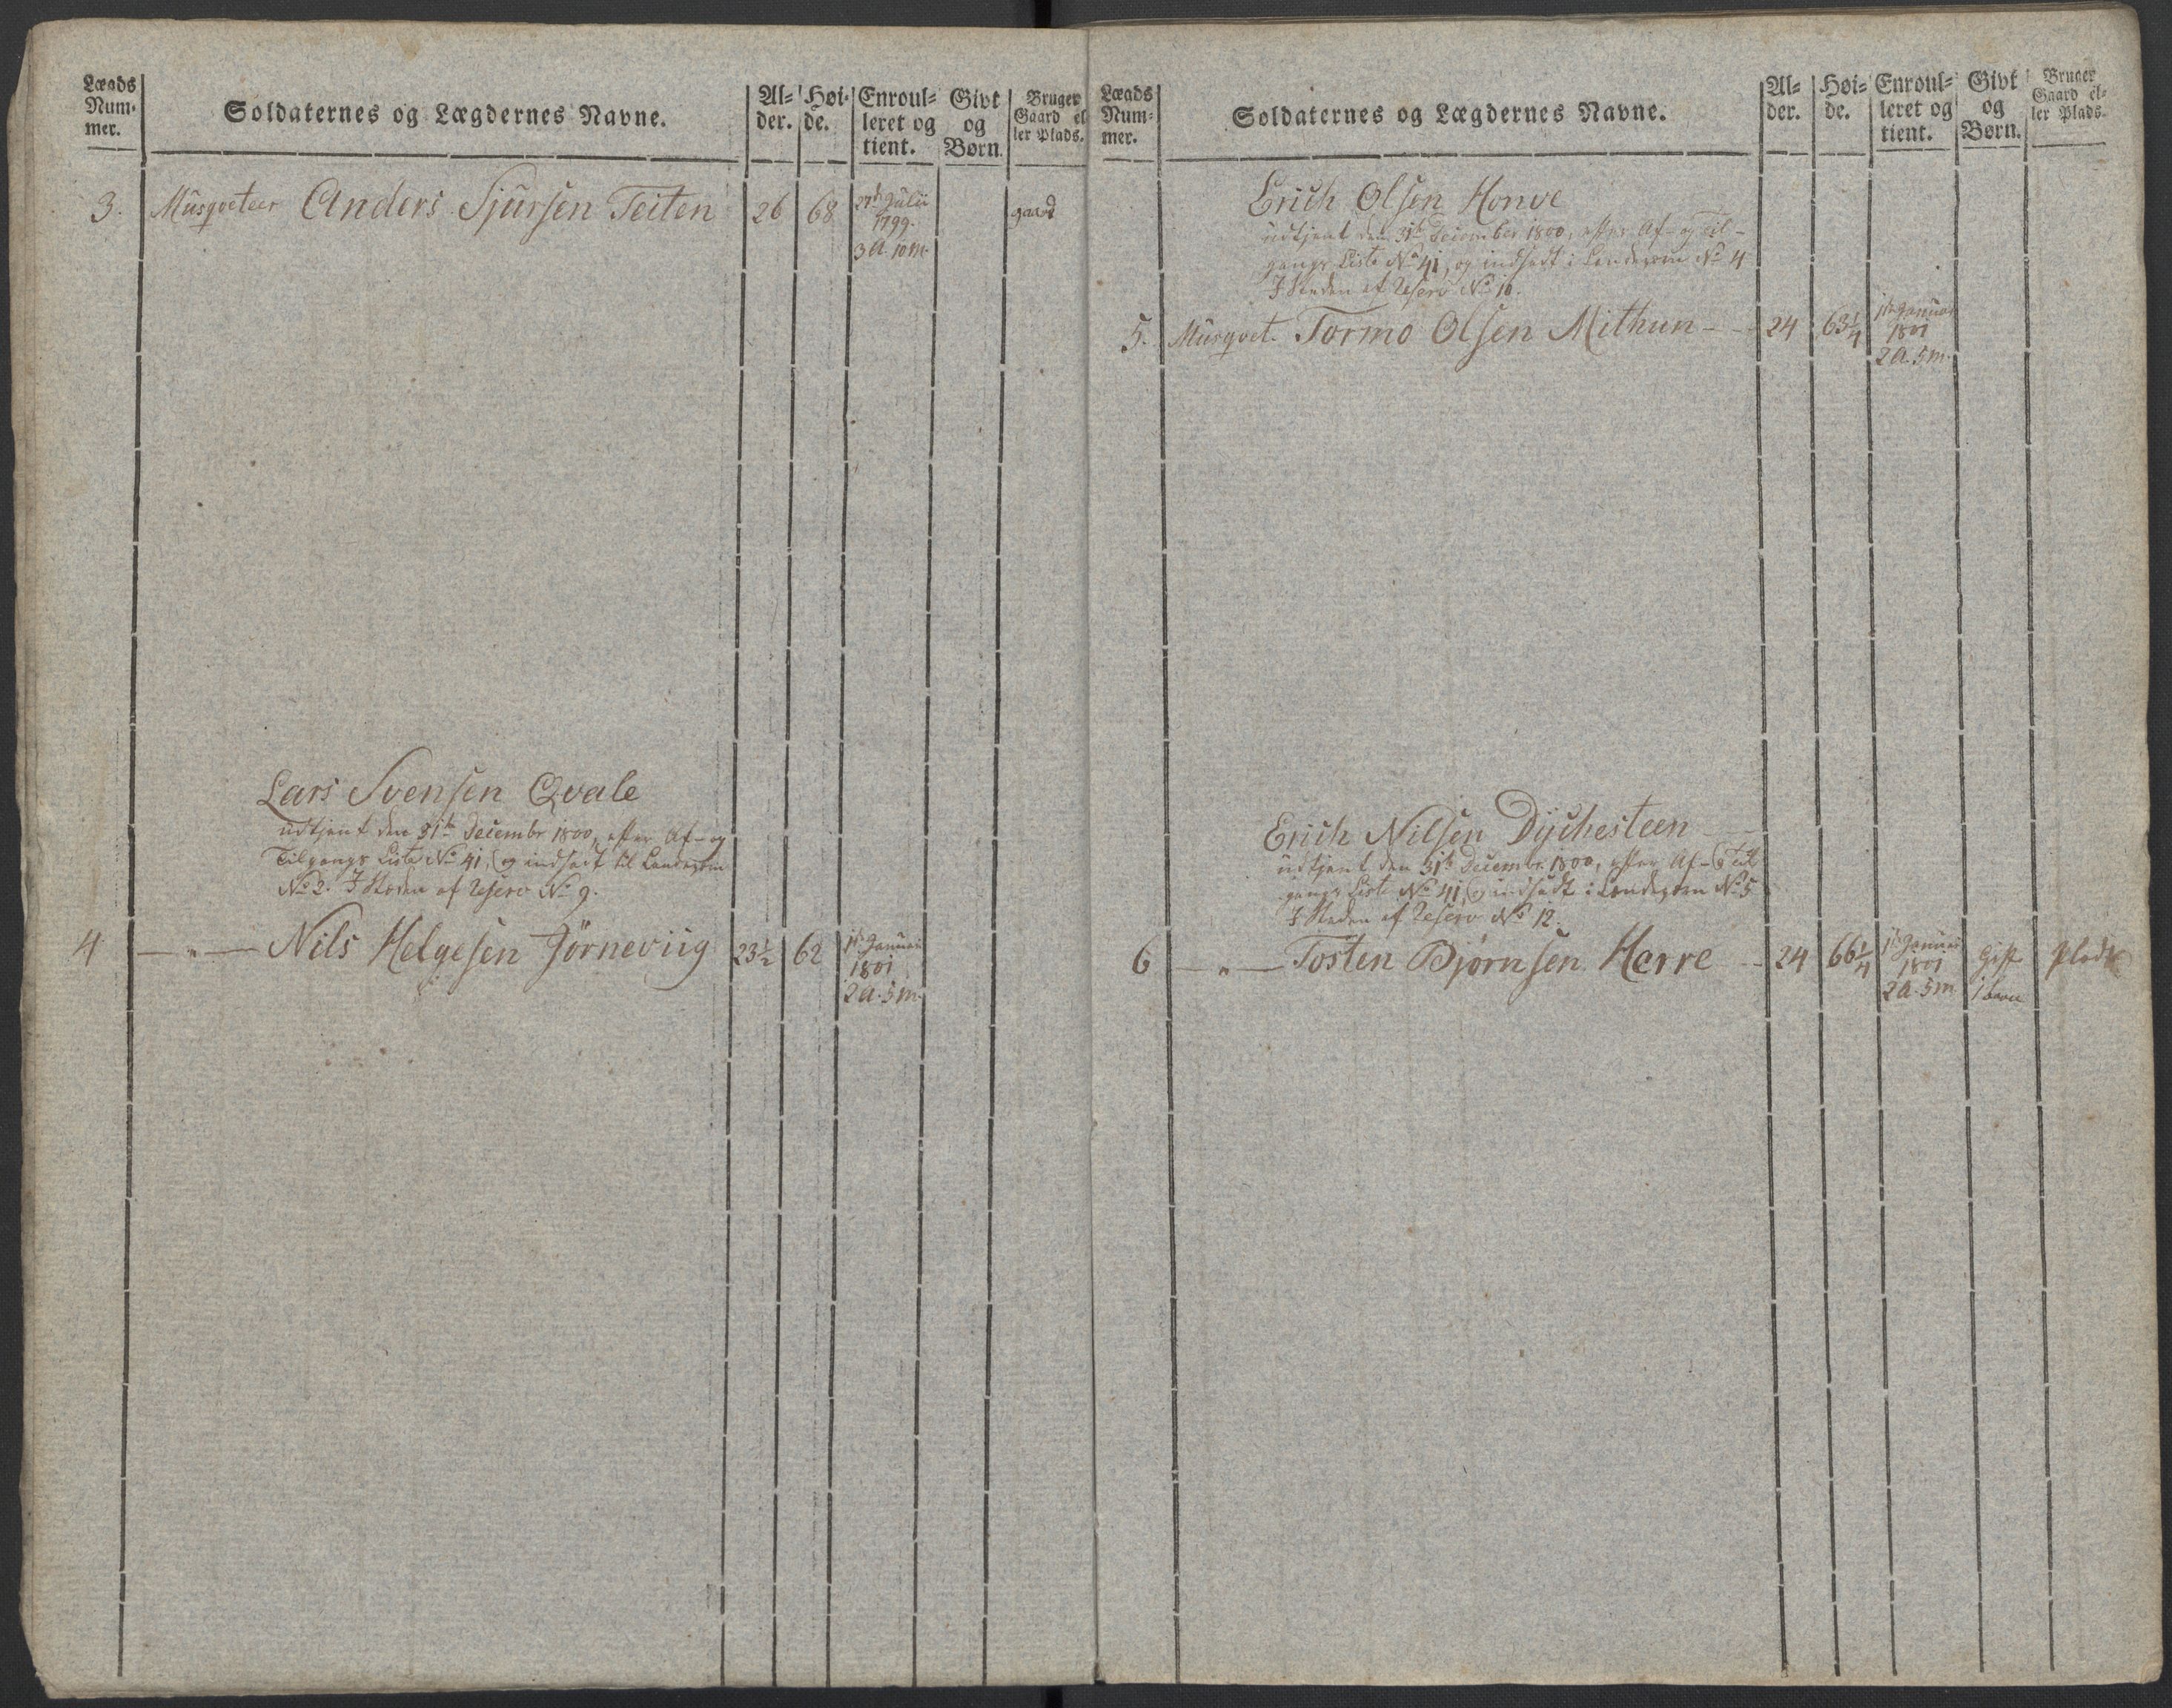 Lægds
Num-
mer.
Soldaternes og Lægdernes Navne.
Al-
der.
Høi-
de.
Enroul-
leret og
tient.
Givt
og
Børn.
Bruger
Gaard el
ler Plads.
3. Musqveteer Anders Sjursen Teiten 26 68 27de Julii gaard
1799.
3 A. 10 M.
Lars Svensen Qvale
udtjent den 31te Decembr 1800, efter Af- og
Tilgangs Liste No 41, og indsadt til Landegom
No 2. I Steden af Reserv No 9.
4 — " — Nils Helgesen Jörneviig 23½ 62 1te Januar
1801
2 A. 5 M.
Lægds
Num-
mer.
Soldaternes og Lægdernes Navne.
Al-
der.
Høi-
de.
Enroul-
leret og
tient.
Givt
og
Børn.
Bruger
Gaard el-
ler Plads.
Erich Olsen Honve
udtjent den 31te December 1800, efter Af- og Til-
gangs Liste No 41, og indsadt i Landegom No 4
I Steden af Reserv No 10.
5. Musqvet. Tormo Olsen Mithun — 24 63¼ 1te Januar
1801
2 A. 5 M.
Erich Nilsen Dÿchesteen
udtjent den 31te Decembr. 1800, efter Af- og Til
gangs Liste No 41, og indsadt i Landegom No 5
I Steden af Reserv No 12.
6 — " — Tosten Bjørnsen Herre — 24 66¼ 1te Januar Gift Plads
1801
2 A. 5 M 1 barn